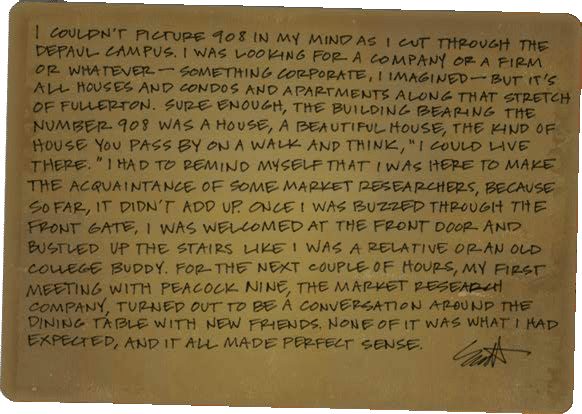 I COULDN'T PICTURE 908 IN MY MIND AS I CUT THROUGH THE
DEPAUL CAMPUS. I WAS LOOKING FOR A COMPANY OR A FIRM
OR WHATEVER— SOMETHING CORPORATE, I IMAGINED— BUT IT'S
ALL HOUSES AND CONDOS AND APARTMENTS ALONG THAT STRETCH
OF FULLERTON. SURE ENOUGH, THE BUILDING BEARING THE
NUMBER 908 WAS A HOUSE, A BEAUTIFUL HOUSE, THE KIND OF
HOUSE YOU PASS BY ON A WALK AND THINK, "I COULD LIVE
THERE." I HAD TO REMIND MYSELF THAT I WAS HERE TO MAKE
THE ACQUAINTANCE OF SOME MARKET RESEARCHERS, BECAUSE
SO FAR, IT DIDN'T ADD UP. ONCE I WAS BUZZED THROUGH THE
FRONT GATE, I WAS WELCOMED AT THE FRONT DOOR AND
BUSTLED UP THE STAIRS LIKE I WAS A RELATIVE OR AN OLD
COLLEGE BUDDY. FOR THE NEXT COUPLE OF HOURS, MY FIRST
MEETING WITH PEACOCK NINE, THE MARKET RESEARCH
COMPANY, TURNED OUT TO BE A CONVERSATION AROUND THE
DINING TABLE WITH NEW FRIENDS. NONE OF IT WAS WHAT I HAD
EXPECTED, AND IT ALL MADE PERFECT SENSE.